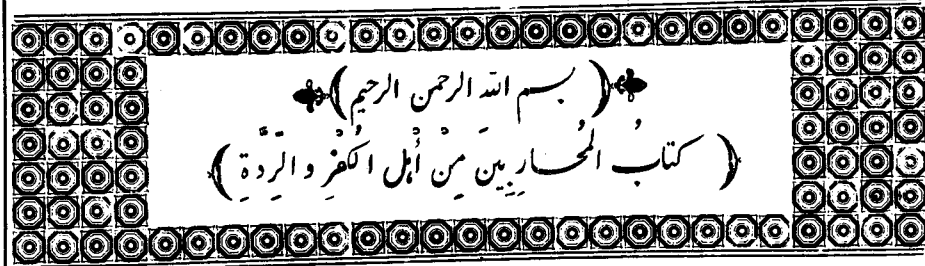 ( بسم الله الرحمن الرحيم )
( كتابُ المُحاربين مِنْ أهلِ الكُفْرِ والرِّدَّةِ )